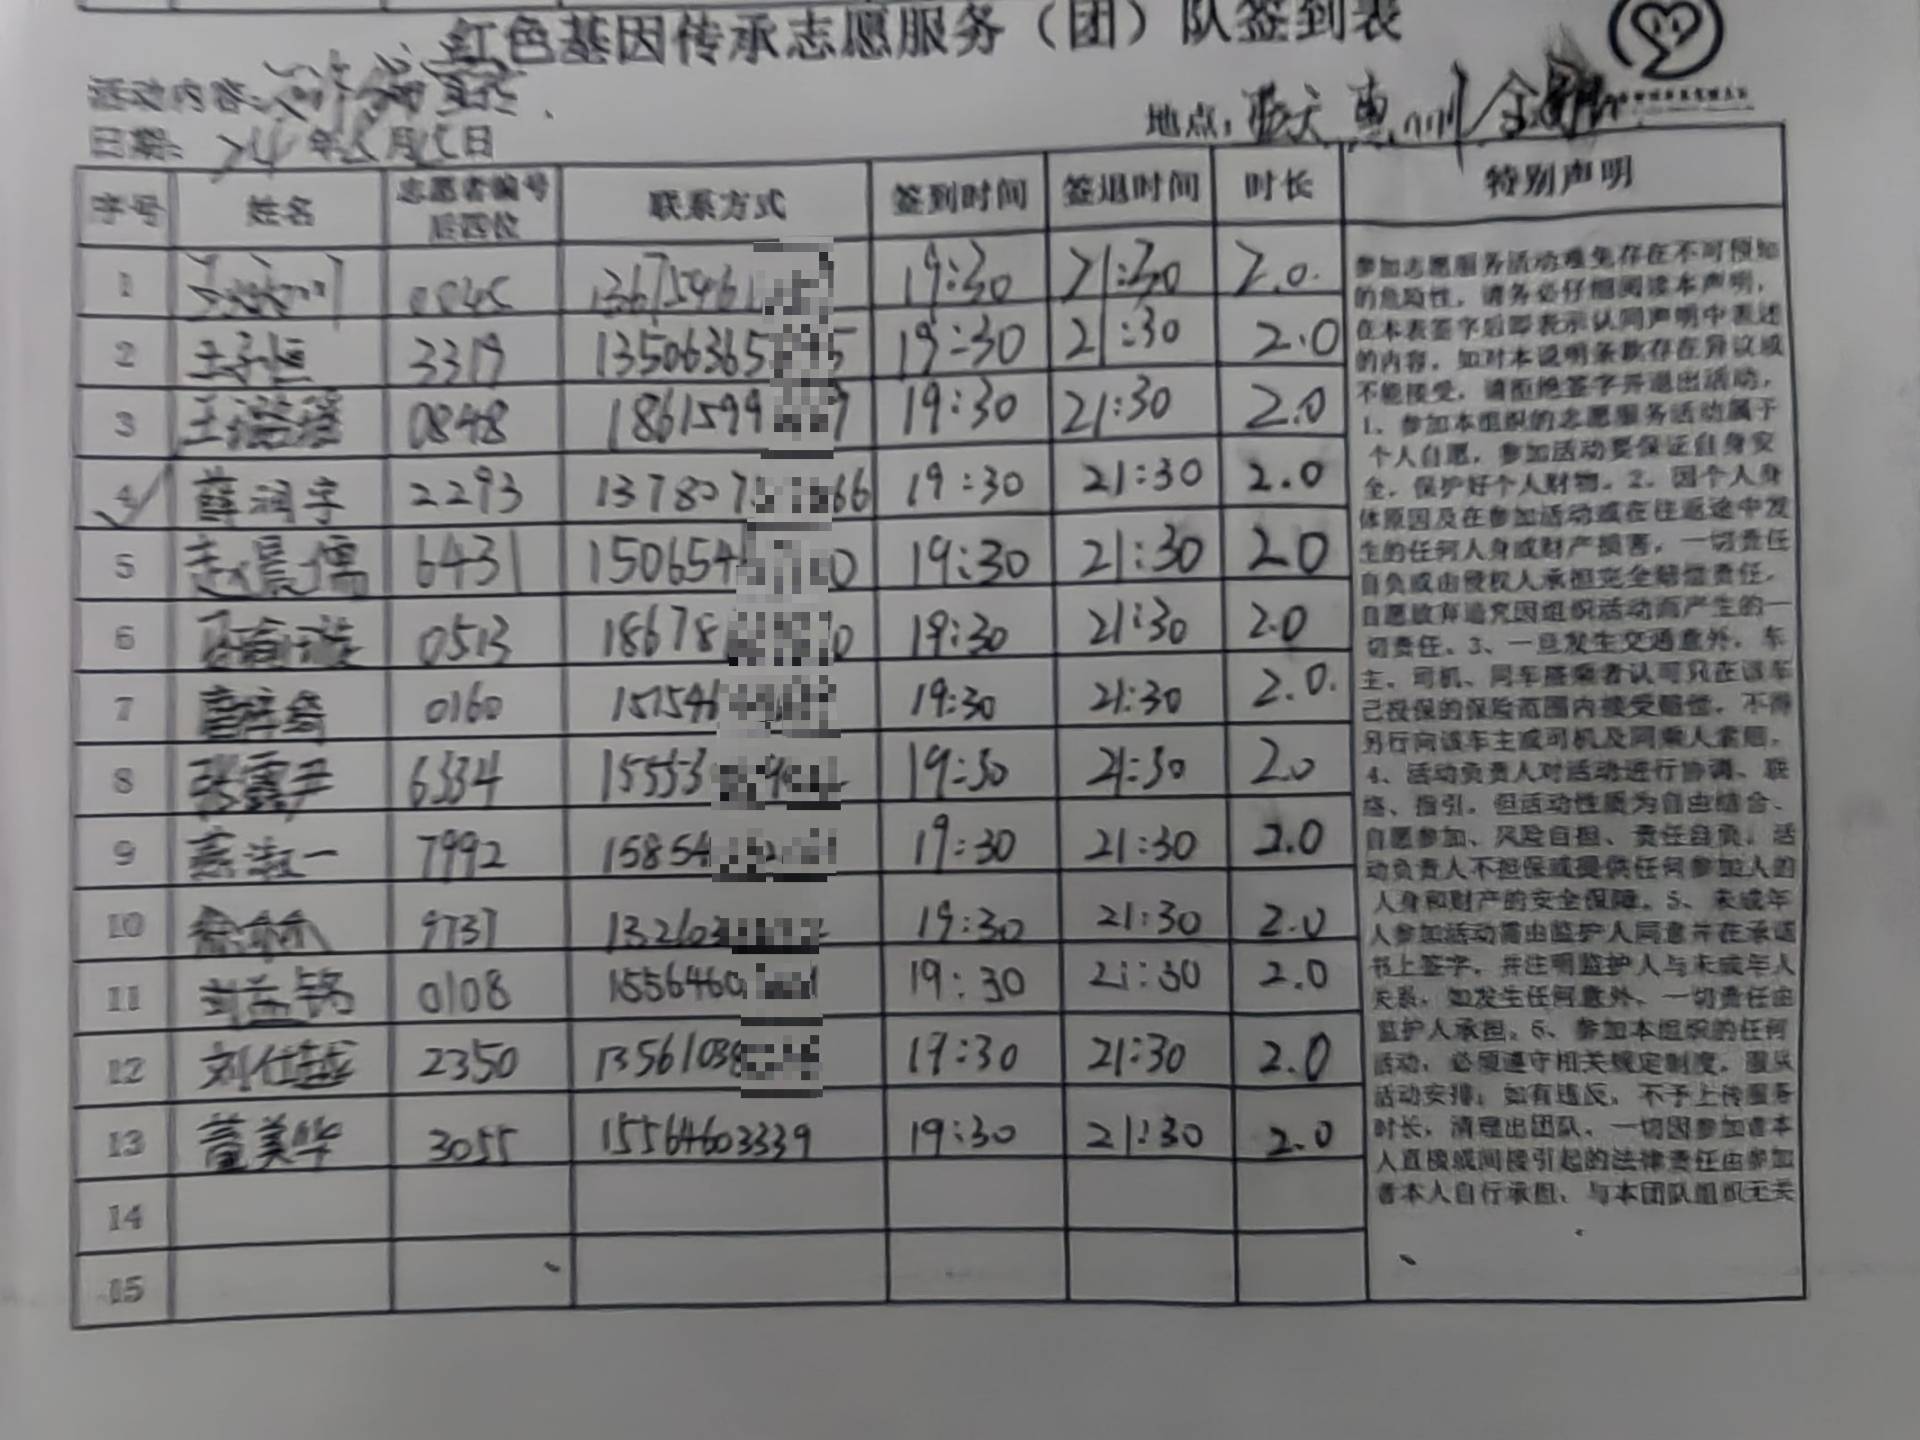 红色基因传承志愿服务（团）队签到表
活动内容：
地点：
日期： 24年 月 日
序号 姓名 志愿者编号后四位 联系方式 签到时间 签退时间 时长 特别声明
1 19:30 21:30 2.0
2 王子恒 3319 13506365 5 19:30 21:30 2.0
3 0848 1861599 19:30 21:30 2.0
4 薛润宇 2293 137807 66 19:30 21:30 2.0
5 赵晨儒 6431 150654 0 19:30 21:30 2.0
6 0513 18678 0 19:30 21:30 2.0
7 0160 157546 19:30 21:30 2.0
8 张露尹 6334 15553 19:30 21:30 2.0
9 燕淑一 7992 15854 19:30 21:30 2.0
10 9737 132603 19:30 21:30 2.0
11 刘益铭 0108 1556460 19:30 21:30 2.0
12 刘仕越 2350 13561038 19:30 21:30 2.0
13 董美华 3055 15564603339 19:30 21:30 2.0
14
15
参加志愿服务活动难免存在不可预知
的危险性，请务必仔细阅读本声明，
在本表签字后即表示认同声明中表述
的内容，如对本说明条款存在异议或
不能接受，请拒绝签字并退出活动，
1、参加本组织的志愿服务活动属于
个人自愿，参加活动要保证自身安
全，保护好个人财物。2、因个人身
体原因及在参加活动或在往返途中发
生的任何人身或财产损害，一切责任
自负或由侵权人承担完全赔偿责任，
自愿放弃追究因组织活动而产生的一
切责任。3、一旦发生交通意外，车
主、司机、同车搭乘者认可只在该车
己投保的保险范围内接受赔偿，不得
另行向该车主或司机及同乘人索赔。
4、活动负责人对活动进行协调、联
络、指引，但活动性质为自由结合、
自愿参加、风险自担、责任自负，活
动负责人不担保或提供任何参加人的
人身和财产的安全保障。5、未成年
人参加活动需由监护人同意并在承诺
书上签字，并注明监护人与未成年人
关系，如发生任何意外，一切责任由
监护人承担。6、参加本组织的任何
活动，必须遵守相关规定制度，服从
活动安排；如有违反，不予上传服务
时长，清理出团队、一切因参加者本
人直接或间接引起的法律责任由参加
者本人自行承担，与本团队组织无关